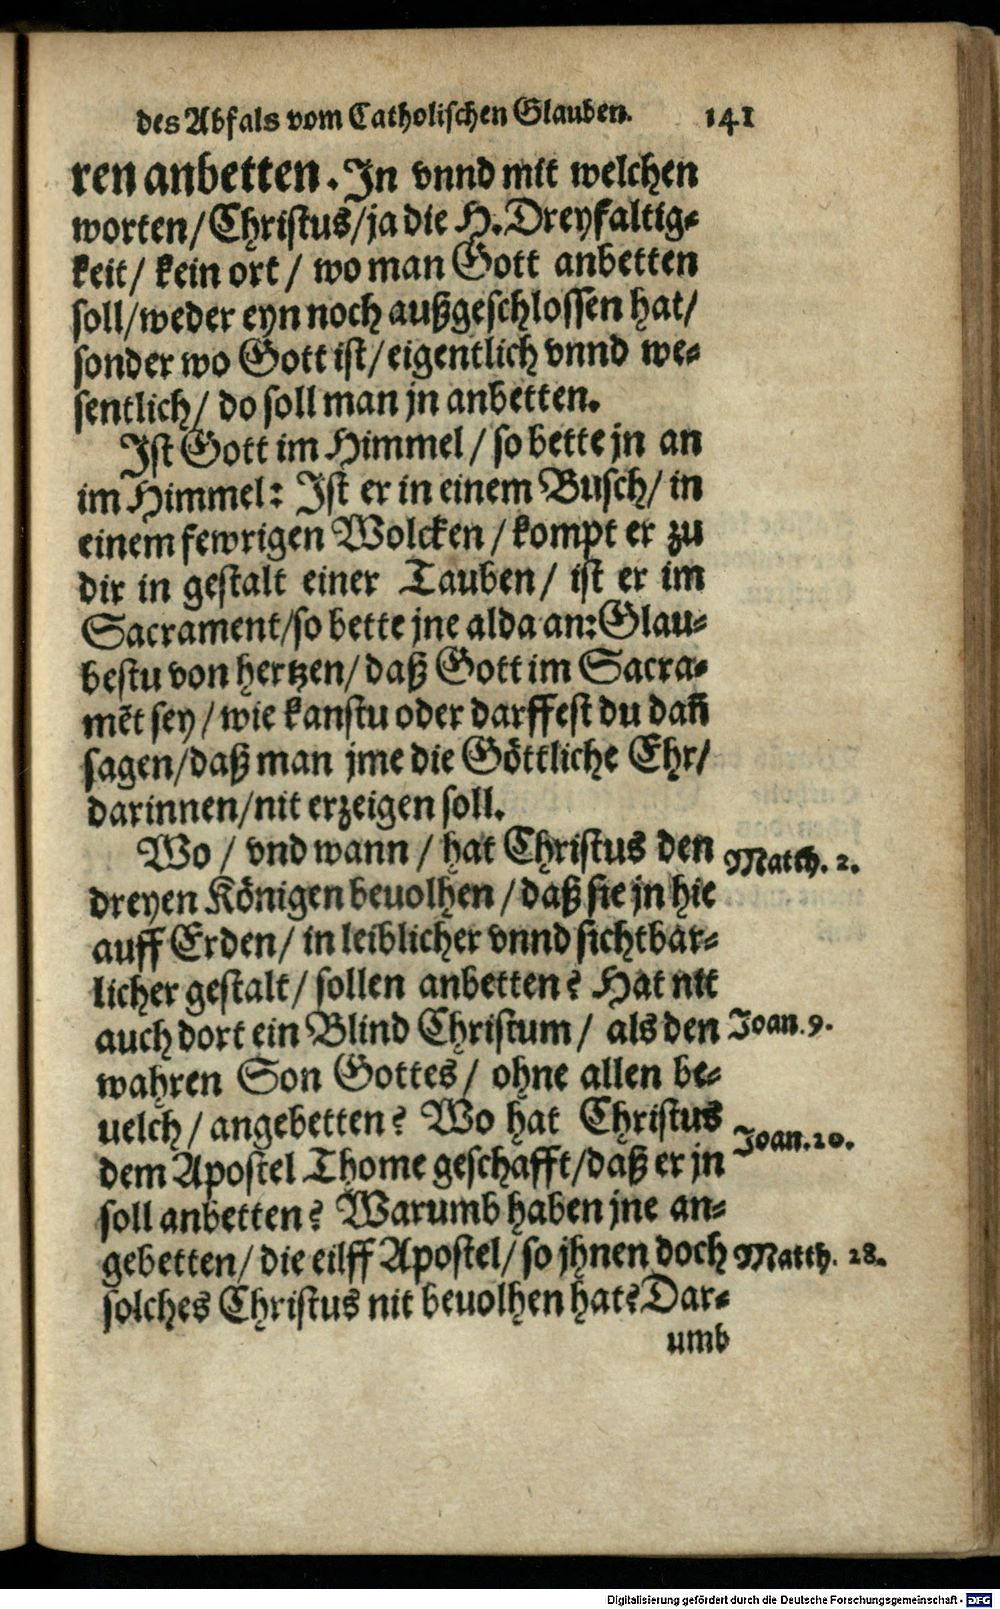 des Abfals vom Catholischen Glauben. 141
ren anbetten. In vnnd mit welchen
worten/ Christus/ ja die H. Dreyfaltig-
keit/ kein ort/ wo man Gott anbetten
soll/ weder eyn noch außgeschlossen hat/
sonder wo Gott ist/ eigentlich vnnd we-
sentlich/ do soll man jn anbetten.
Ist Gott im Himmel/ so bette jn an
im Himmel: Ist er in einem Busch/ in
einem fewrigen Wolcken/ kompt er zu
dir in gestalt einer Tauben/ ist er im
Sacrament/ so bette jne alda an: Glau-
bestu von hertzen/ daß Gott im Sacra-
mẽt sey/ wie kanstu oder darffest du dañ
sagen/ daß man jme die Göttliche Ehr/
darinnen/ nit erzeigen soll.
Wo/ vnd wann/ hat Christus den Matth. 2.
dreyen Königen beuolhen/ daß sie jn hie
auff Erden/ in leiblicher vnnd sichtbar-
licher gestalt/ sollen anbetten? Hat nit
auch dort ein Blind Christum/ als den Joan. 9.
wahren Son Gottes/ ohne allen be-
uelch/ angebetten? Wo hat Christus
dem Apostel Thome geschafft/ daß er jn Joan. 20.
soll anbetten? Warumb haben jne an-
gebetten/ die eilff Apostel/ so jhnen doch Matth. 28.
solches Christus nit beuolhen hat? Dar-
umb
Digitalisierung gefördert durch die Deutsche Forschungsgemeinschaft - DFG